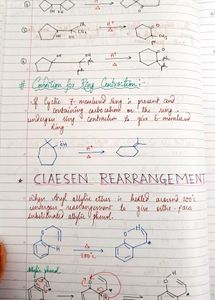 H⁺
Δ
H⁺
Δ
CH₃
③
H⁺
Δ
# Condition for Ring Contraction :-
If cyclic 7-membered ring is present and
containing carbocation on the ring,
undergoes ring contraction to give 6-membered
ring.
OH
H⁺
Δ
★ CLAESEN REARRANGEMENT
when aryl allylic ether is heated around 200°C
undergoes rearrangement to give ortho-para
substituted allylic phenol.
O
Δ
200°C
OH
Allylic phenol